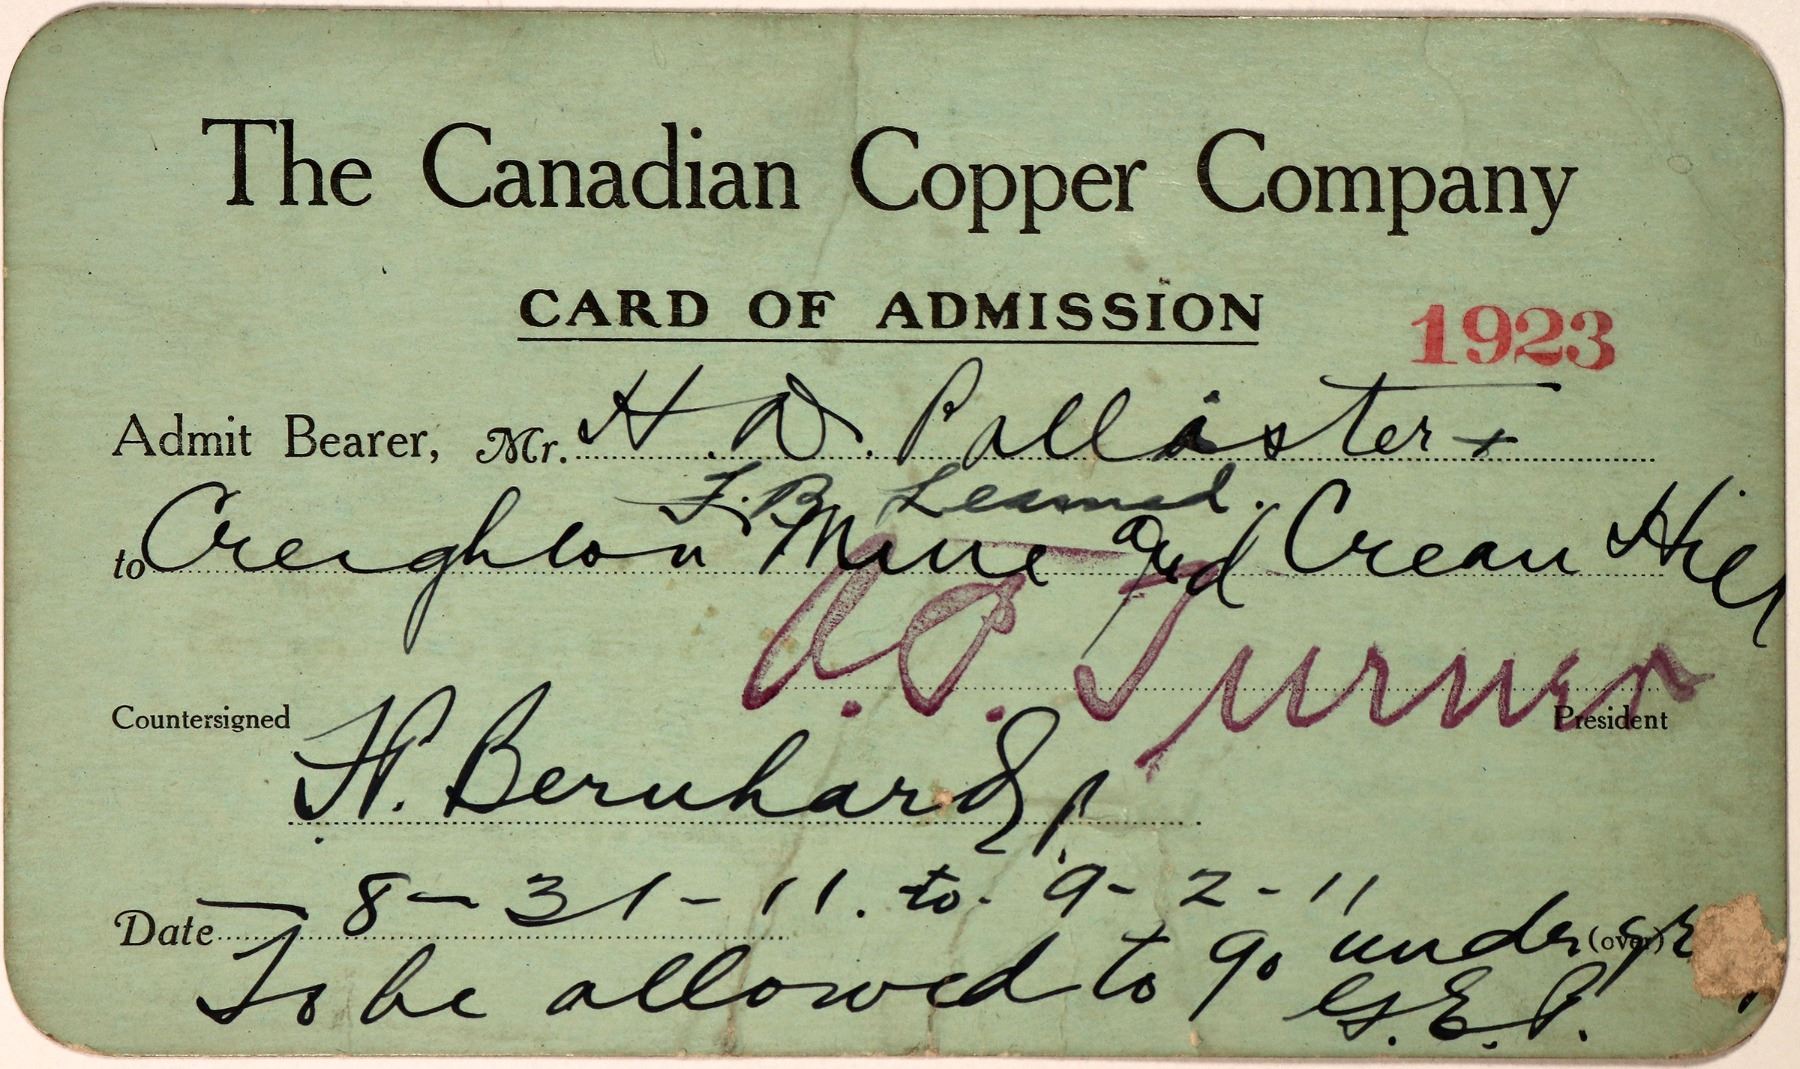 The Canadian Copper Company
CARD OF ADMISSION
1923
Admit Bearer, Mr. H. D. Pallister +
F. B. Learned.
to Creighton Mine and Crean Hill
A. P. Turner
President
Countersigned
H. Bernhard
Date 8-31-11. to. 9-2-11
To be allowed to go under
(over)
G. E. P.